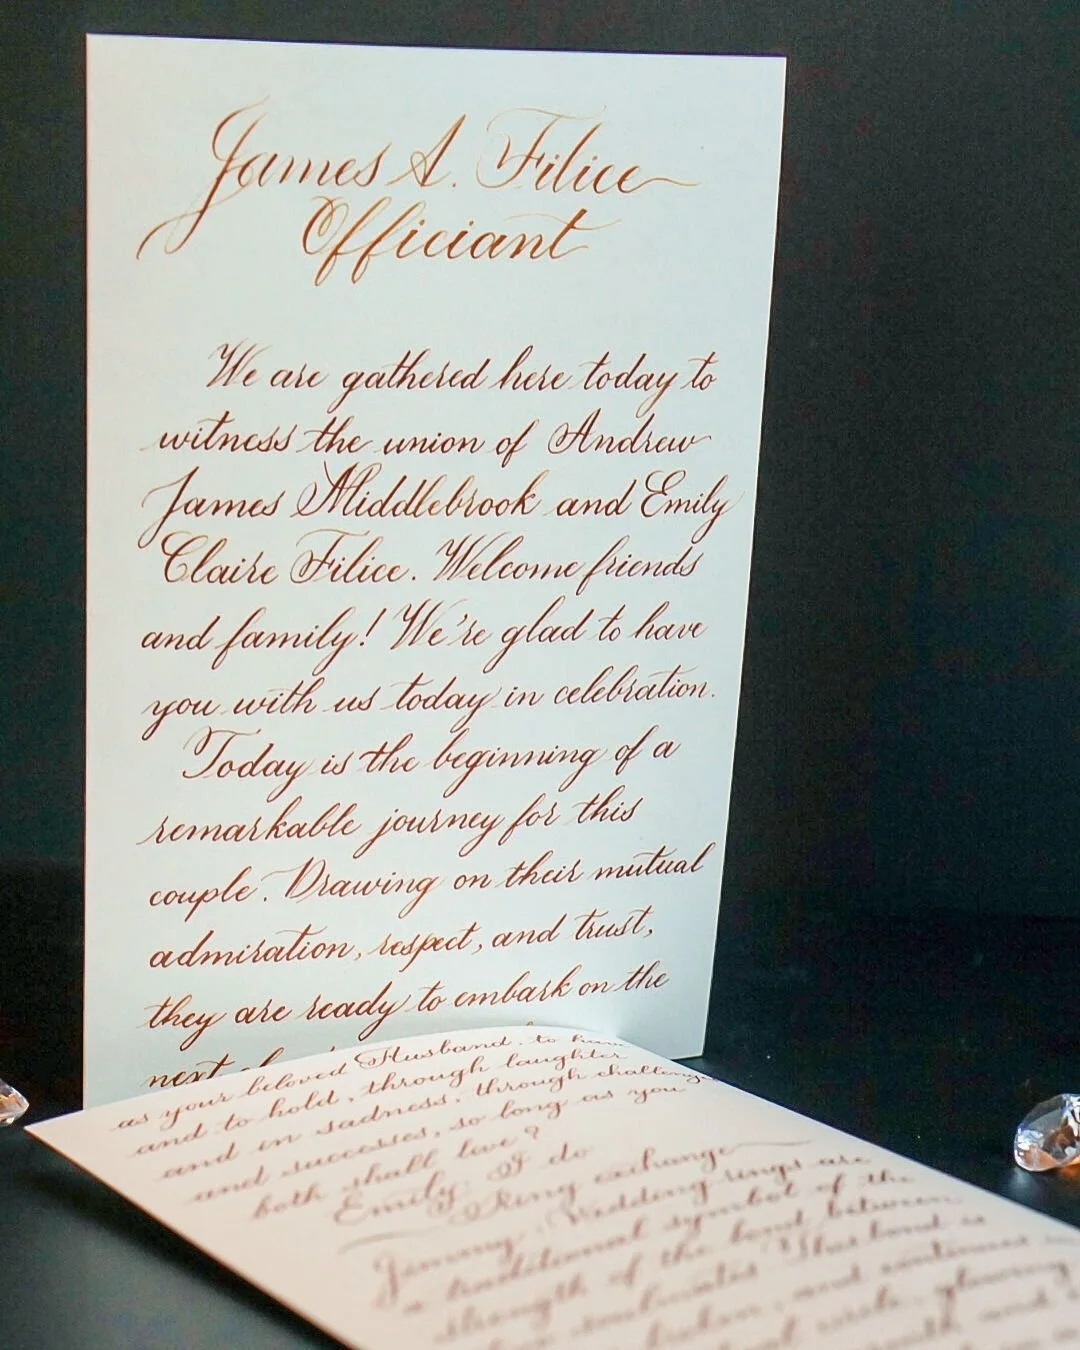 James A. Filice
Officiant
We are gathered here today to
witness the union of Andrew
James Middlebrook and Emily
Claire Filice. Welcome friends
and family! We're glad to have
you with us today in celebration.
Today is the beginning of a
remarkable journey for this
couple. Drawing on their mutual
admiration, respect, and trust,
they are ready to embark on the
next
as your beloved Husband. to have
and to hold, through laughter
and in sadness, through challenges
and successes, so long as you
both shall live?
Emily: I do
Ring exchange
Jimmy: Wedding rings are
a traditional symbol of the
strength of the bond between
band is
broken, and continues
circle, glowing